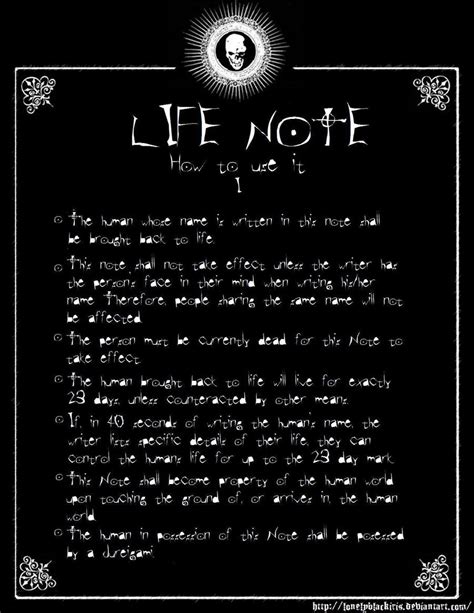 LIFE NOTE
How to use it
I
The human whose name is written in this note shall
be brought back to life.
This note shall not take effect unless the writer has
the persons face in their mind when writing his/her
name Therefore, people sharing the same name will not
be affected
The person must be currently dead for this Note to
take effect
The human brought back to life will live for exactly
23 days, unless counteracted by other means.
If, in 40 seconds of writing the humans name, the
writer lists specific details of their life, they can
control the humans life for up to the 23 day mark
This Note shall become property of the human world
upon touching the ground of, or arrives in, the human
world
The human in possession of this Note shall be posessed
by a
http://lonelyblackiris.deviantart.com/